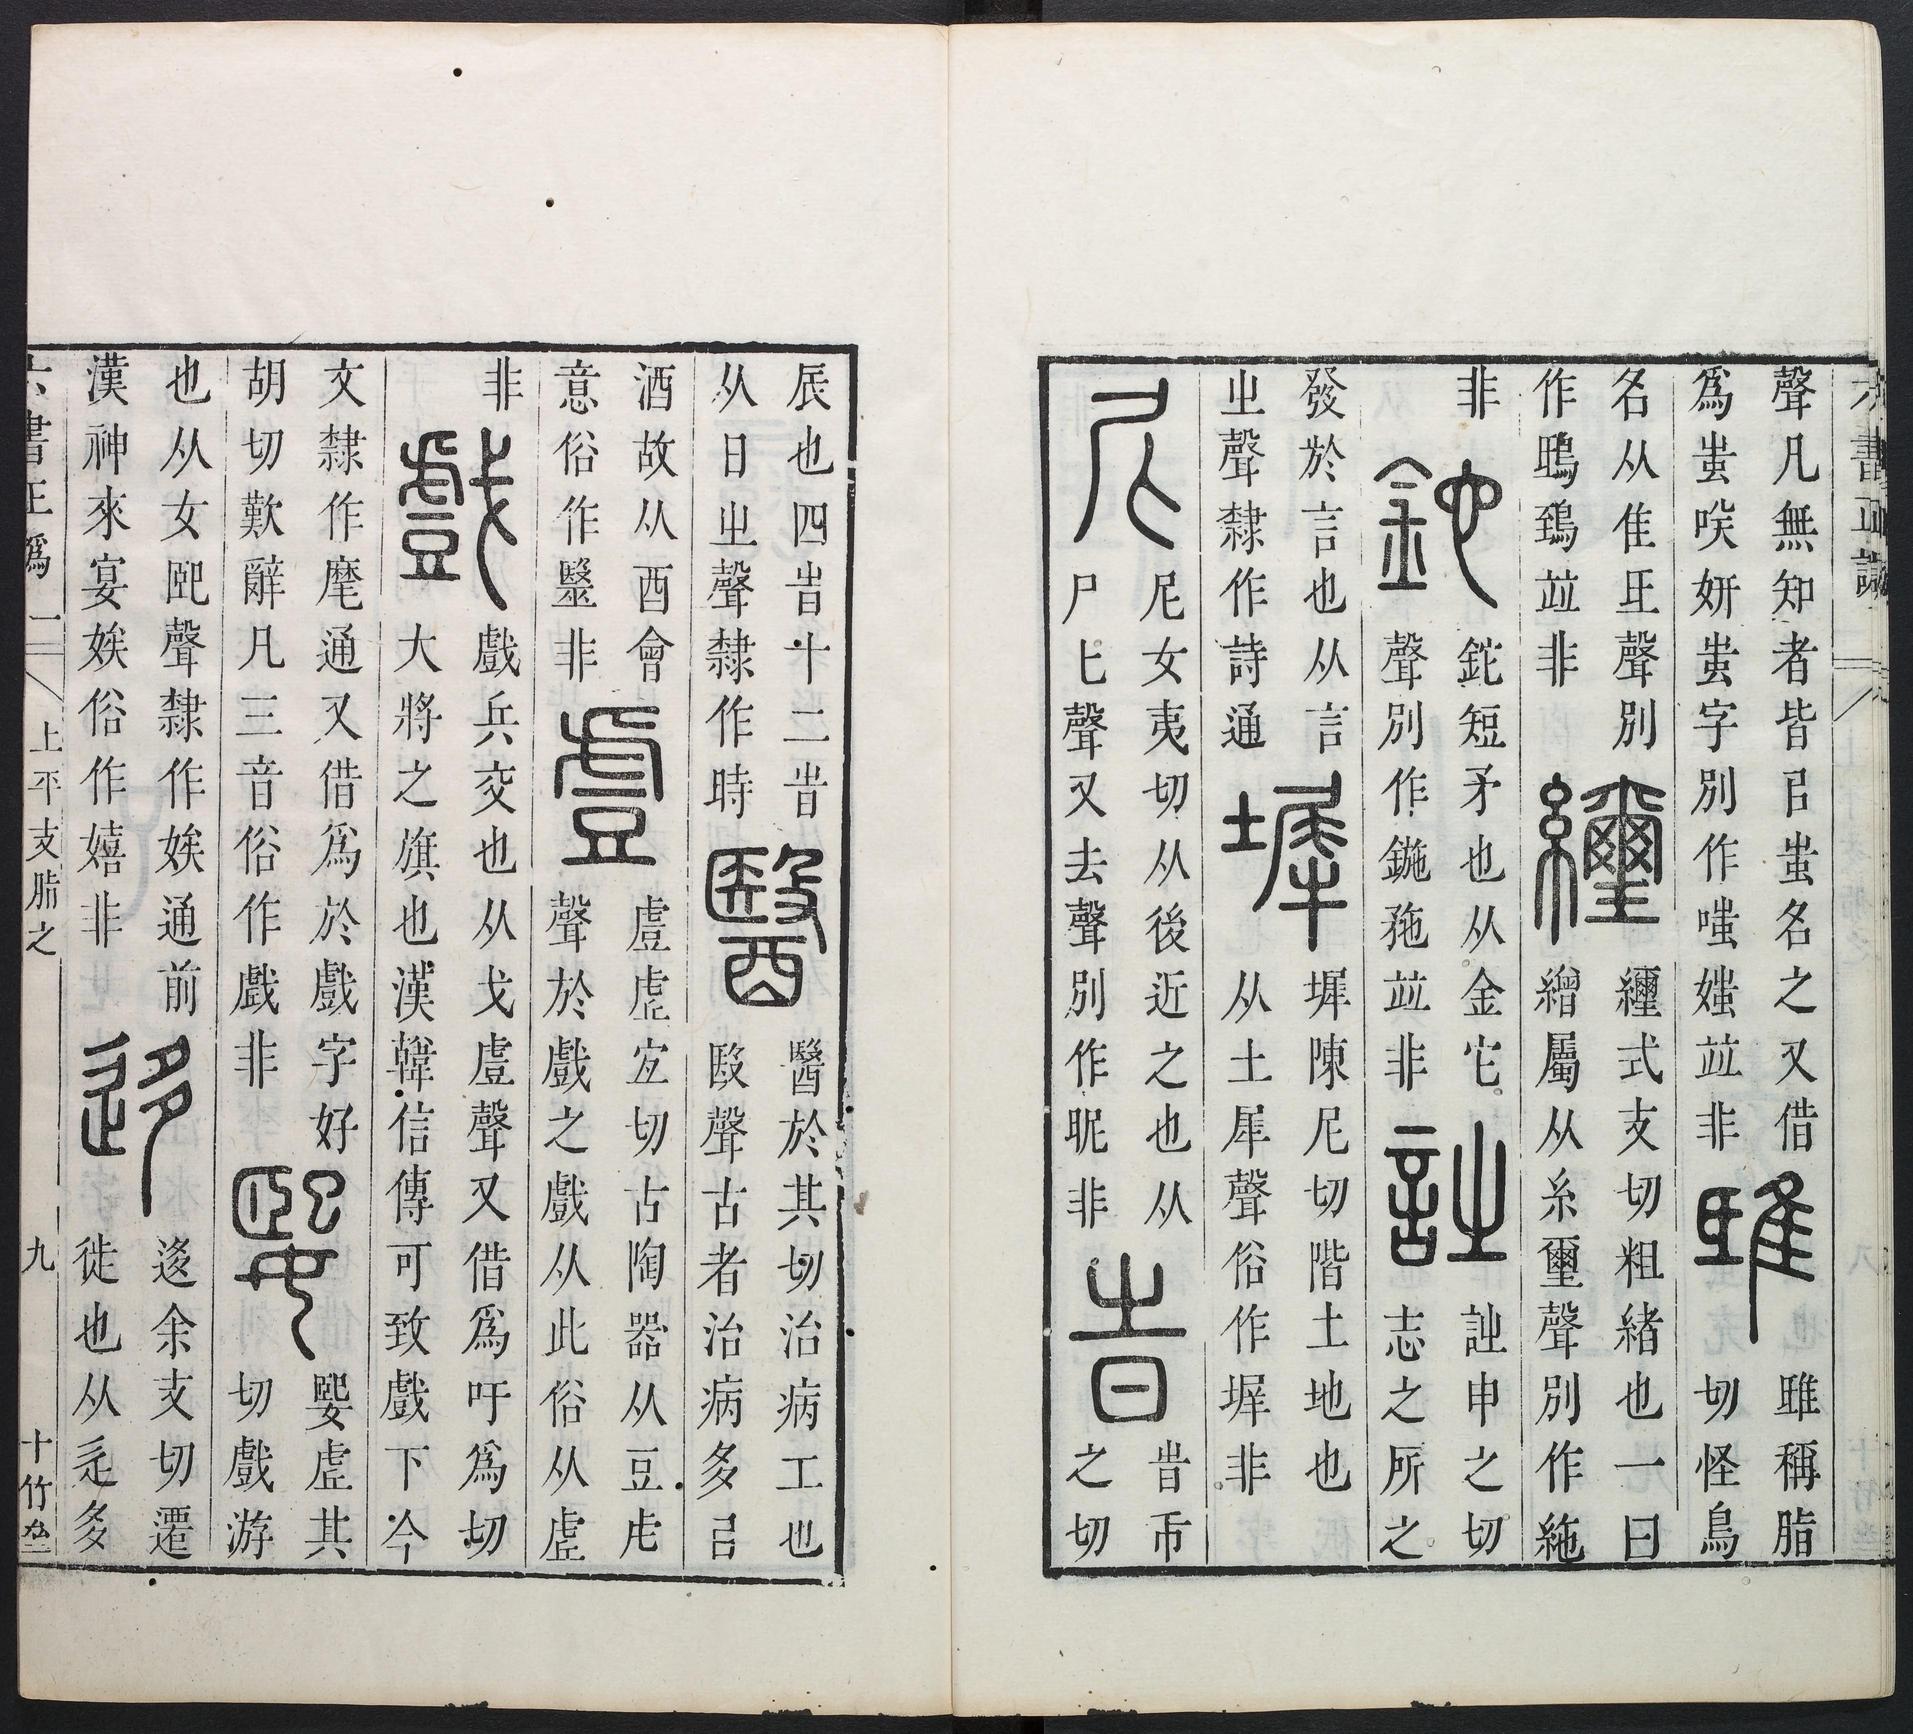 六書正譌
聲凡無知者皆㠯蚩名之又借
爲蚩咲姸蚩字別作嗤媸竝非
雎
雎稱脂
切怪鳥
名从隹氐聲別
作鴟鵄竝非
䌳
䌳式支切粗緒也一曰
繒屬从糸璽聲別作絁
非
鉈
鉈短矛也从金它
聲別作鍦𥍸竝非
訨
訨申之切
志之所之
發於言也从言
㞢聲隸作詩通
墀
墀陳尼切階土地也
从土犀聲俗作墀非
尼
尼女夷切从後近之也从
尸匕聲又去聲別作昵非
旹
旹市
之切
辰也四旹十二旹
从日㞢聲隸作時
醫
醫於其切治病工也
殹聲古者治病多㠯
酒故从酉會
意俗作毉非
䖒
䖒虛宜切古陶器从豆虍
聲於戲之戲从此俗从虛
非
戲
戲兵交也从戈䖒聲又借爲吁爲切
大將之旗也漢韓信傳可致戲下今
文隸作麾通又借爲於戲字好
胡切歎辭凡三音俗作戱非
媐
媐虛其
切戲游
也从女巸聲隸作娭通前
漢神來宴娭俗作嬉非
迻
迻余支切遷
徙也从辵多
六書正譌 一 上平支脂之 九 十竹